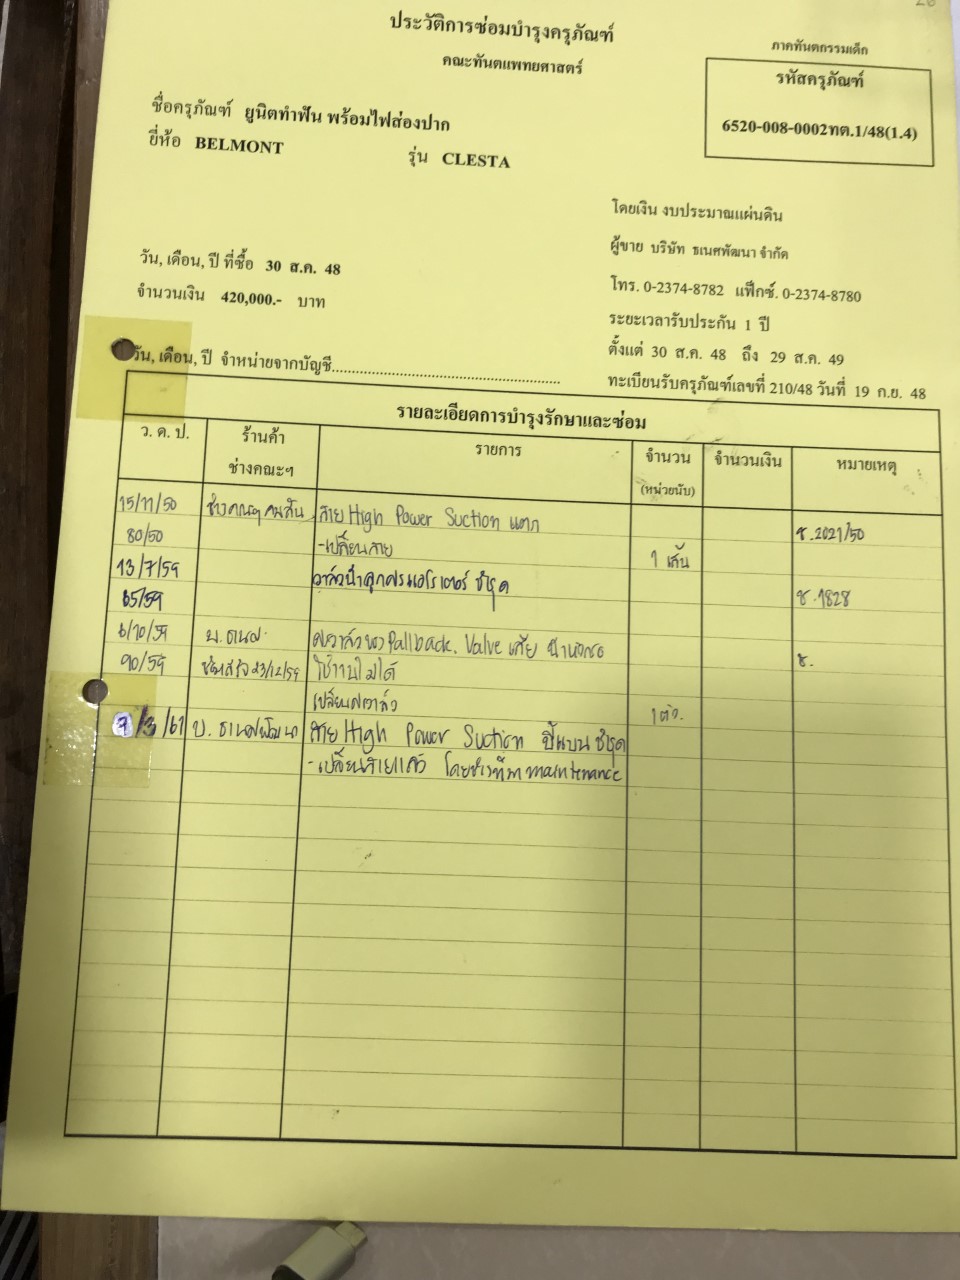 ประวัติการซ่อมบำรุงครุภัณฑ์
คณะทันตแพทยศาสตร์
ภาคทันตกรรมเด็ก
รหัสครุภัณฑ์
6520-008-0002ทต.1/48(1.4)
ชื่อครุภัณฑ์ ยูนิตทำฟัน พร้อมไฟส่องปาก
ยี่ห้อ BELMONT รุ่น CLESTA
โดยเงิน งบประมาณแผ่นดิน
ผู้ขาย บริษัท ธเนศพัฒนา จำกัด
วัน, เดือน, ปี ที่ซื้อ 30 ส.ค. 48
โทร. 0-2374-8782 แฟ็กซ์. 0-2374-8780
จำนวนเงิน 420,000.- บาท
ระยะเวลารับประกัน 1 ปี
ตั้งแต่ 30 ส.ค. 48 ถึง 29 ส.ค. 49
วัน, เดือน, ปี จำหน่ายจากบัญชี
ทะเบียนรับครุภัณฑ์เลขที่ 210/48 วันที่ 19 ก.ย. 48
รายละเอียดการบำรุงรักษาและซ่อม
ว. ด. ป. ร้านค้า ช่างคณะฯ รายการ จำนวน (หน่วยนับ) จำนวนเงิน หมายเหตุ
15/11/50 ช่างคณะฯ สาย High Power Suction แตก ซ.2021/50
80/50 -เปลี่ยนสาย 1 เส้น
13/7/59 ชำรุด ซ.1828
65/59
6/10/59 บ.ธเนศ Valve เสีย
90/59 23/12/59 ใช้งานไม่ได้ ซ.
เปลี่ยน 1 ตัว.
7/3/61 บ. ธเนศพัฒนา สาย High Power Suction ชำรุด
-เปลี่ยนสายแล้ว โดยช่างที่มา maintenance